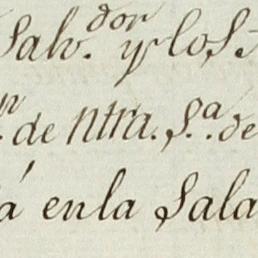 Salv.dor y los S.
n. de ntra. S.a de
á en la Sala